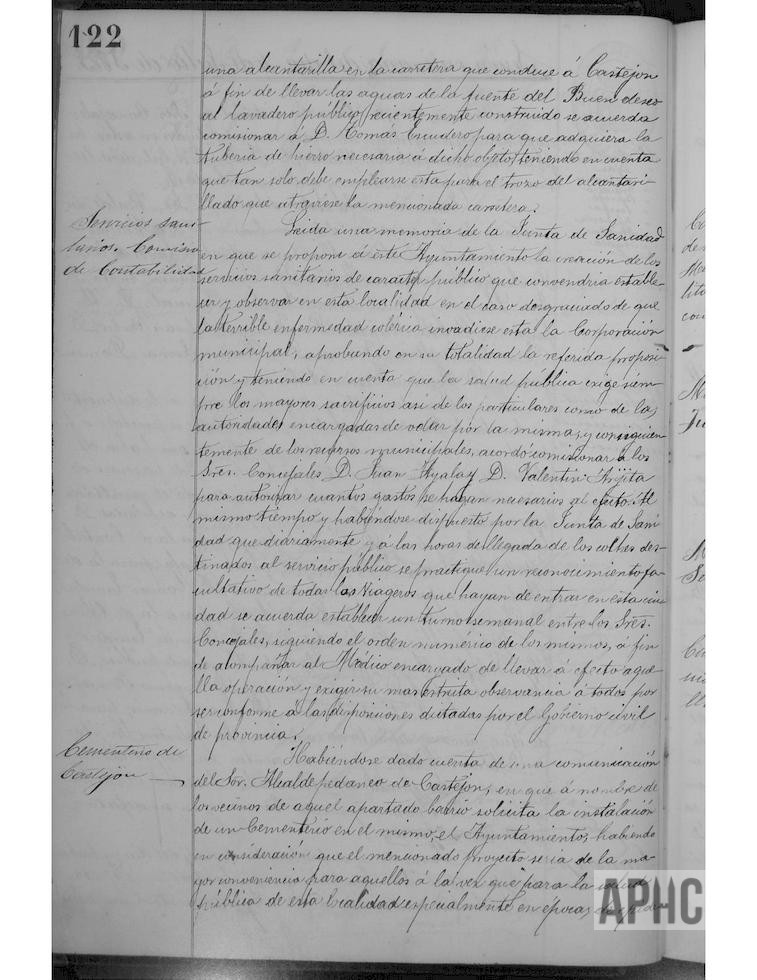 122
una alcantarilla en la carretera que conduce á Castejon
á fin de llevar las aguas de la fuente del Buen deseo
al lavadero público, recientemente construido se acuerda
comisionar á D. Tomás Escudero para que adquiera la
tuberia de hierro necesaria á dicho objeto, teniendo en cuenta
que tan solo debe emplearse esta para el trozo del alcantari-
llado que atraviese la mencionada carretera.
Servicios sani-
tarios. Comision
de Contabilidad
Leida una memoria de la Junta de Sanidad
en que se propone á este Ayuntamiento la creación de los
servicios sanitarios de caracter público que convendria estable-
cer y observar en esta localidad en el caso desgraciado de que
la terrible enfermedad colérica invadiese esta la Corporación
municipal, aprobando en su totalidad la referida proposi-
ción y teniendo en cuenta que la salud pública exige siem-
pre los mayores sacrificios asi de los particulares como de las
autoridades encargadas de velar por la misma, y consiguien-
temente de los recursos municipales, acordó comisionar á los
Sres. Concejales D. Juan Ayala y D. Valentin Arijita
para autorizar cuantos gastos se hagan necesarios al efecto. Al
mismo tiempo y habiéndose dispuesto por la Junta de Sani
dad que diariamente y á las horas de llegada de los coches des-
tinados al servicio público se practique un reconocimiento fa-
cultativo de todas los viageros que hayan de entrar en esta ciu
dad se acuerda establecer un turno semanal entre los Sres.
Concejales, siguiendo el orden numérico de los mismos, á fin
de acompañar al Médico encargado de llevar á efecto aque-
lla operación y exigir su mas estricta observancia á todos por
ser conforme a las disposiciones dictadas por el Gobierno civil
de provincia.
Cementerio de
Castejon
Habiéndose dado cuenta de una comunicación
del Sor. Alcalde pedaneo de Castejon, en que á nombre de
los vecinos de aquel apartado barrio solicita la instalación
de un Cementerio en el mismo, el Ayuntamiento, habiendo
en consideración que el mencionado proyecto seria de la ma-
yor conveniencia para aquellos á la vez que para la salud
pública de esta localidad especialmente en épocas de epide-
APHC